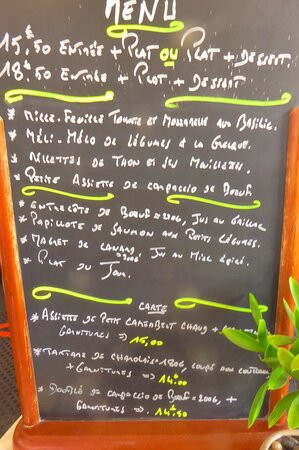 MENU
15€,50 ENTRÉE + PLAT OU PLAT + DESSERT
18€,50 ENTRÉE + PLAT + DESSERT
* MILLE-FEUILLE TOMATE ET MOZZARELLE AUX BASILIC.
* MÉLI-MÉLO DE LÉGUMES À LA GRECQUE.
* RILLETTES DE THON ET SES
* PETITE ASSIETTE DE CARPACCIO DE BOEUF
* ENTRECÔTE DE BOEUF = 200G, JUS AU
* PAPILLOTE DE SAUMON AUX PETITS LÉGUMES.
* MAGRET DE CANARD, JUS AU MIEL ÉPICÉ.
* PLAT DU JOUR.
CARTE
* ASSIETTE DE PETIT CAMEMBERT CHAUD +
GARNITURES => 15,00
* TARTARE DE CHAROLAIS = 180G, COUPÉ AUX COUTEAUX
+ GARNITURES => 14€,00
* DOUBLE DE CARPACCIO DE BOEUF = 200G, +
GARNITURES =>. 14€,50